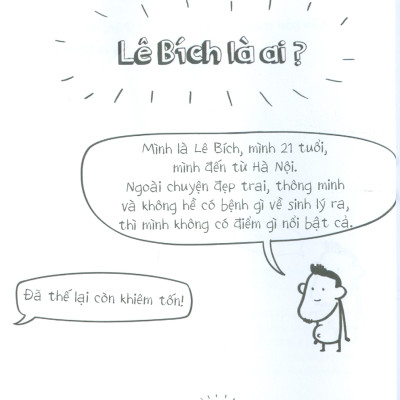 Lê Bích là ai?
Mình là Lê Bích, mình 21 tuổi,
mình đến từ Hà Nội.
Ngoài chuyện đẹp trai, thông minh
và không hề có bệnh gì về sinh lý ra,
thì mình không có điểm gì nổi bật cả.
Đã thế lại còn khiêm tốn!